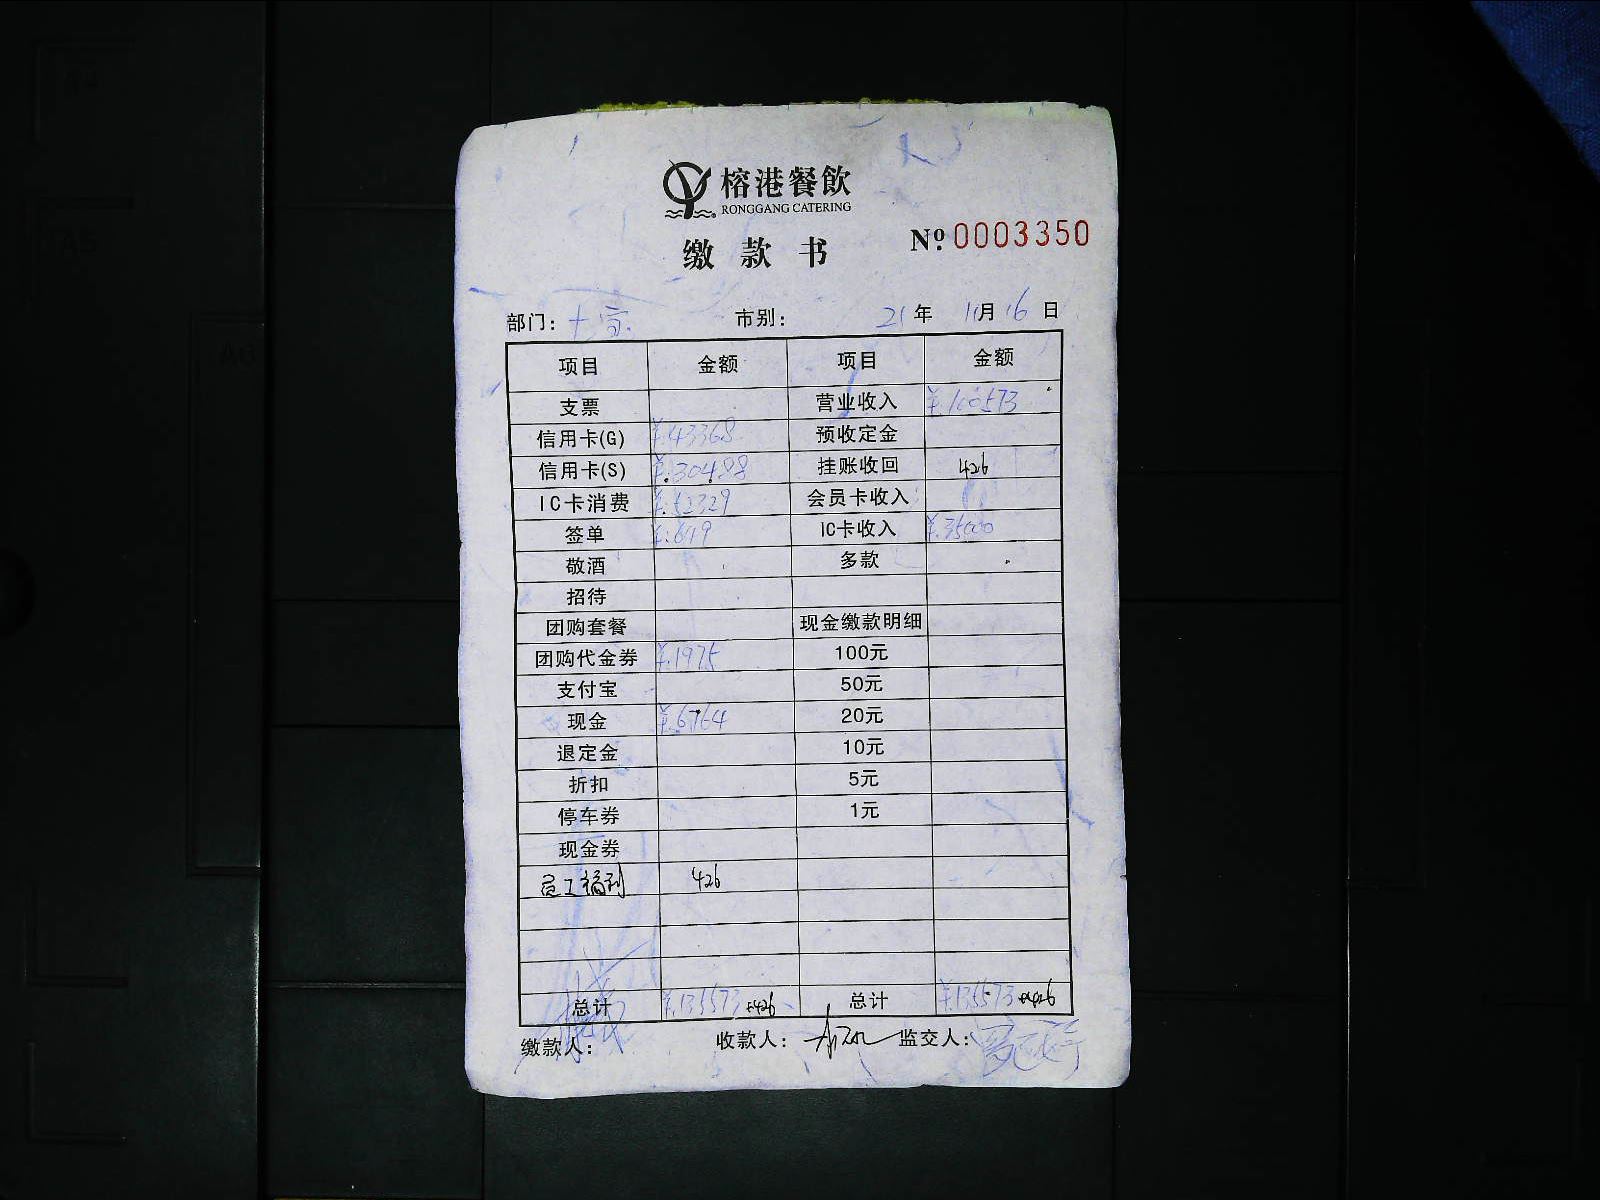 榕港餐飲
RONGGANG CATERING
缴款书
№ 0003350
部门： 市别： 21年 11月 16日
项目 金额 项目 金额
支票 营业收入 ¥:100573
信用卡(G) ¥:43368 预收定金
信用卡(S) ¥:30488 挂账收回 426
IC卡消费 ¥:52329 会员卡收入
签单 ¥:649 IC卡收入 ¥:35000
敬酒 多款
招待
团购套餐 现金缴款明细
团购代金券 ¥:1975 100元
支付宝 50元
现金 ¥:6764 20元
退定金 10元
折扣 5元
停车券 1元
现金券
员工福利 426
总计 ¥:135573+426 总计 ¥:135573+426
缴款人： 收款人： 监交人：